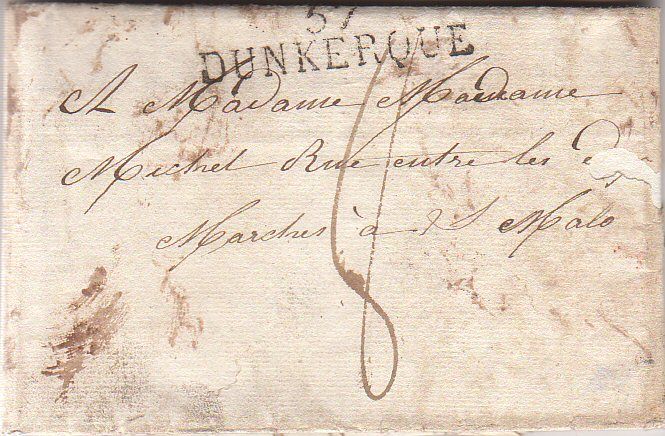 57
DUNKERQUE
A Madame Madame
Michel Rue entre les d
Marches à St Malo
8